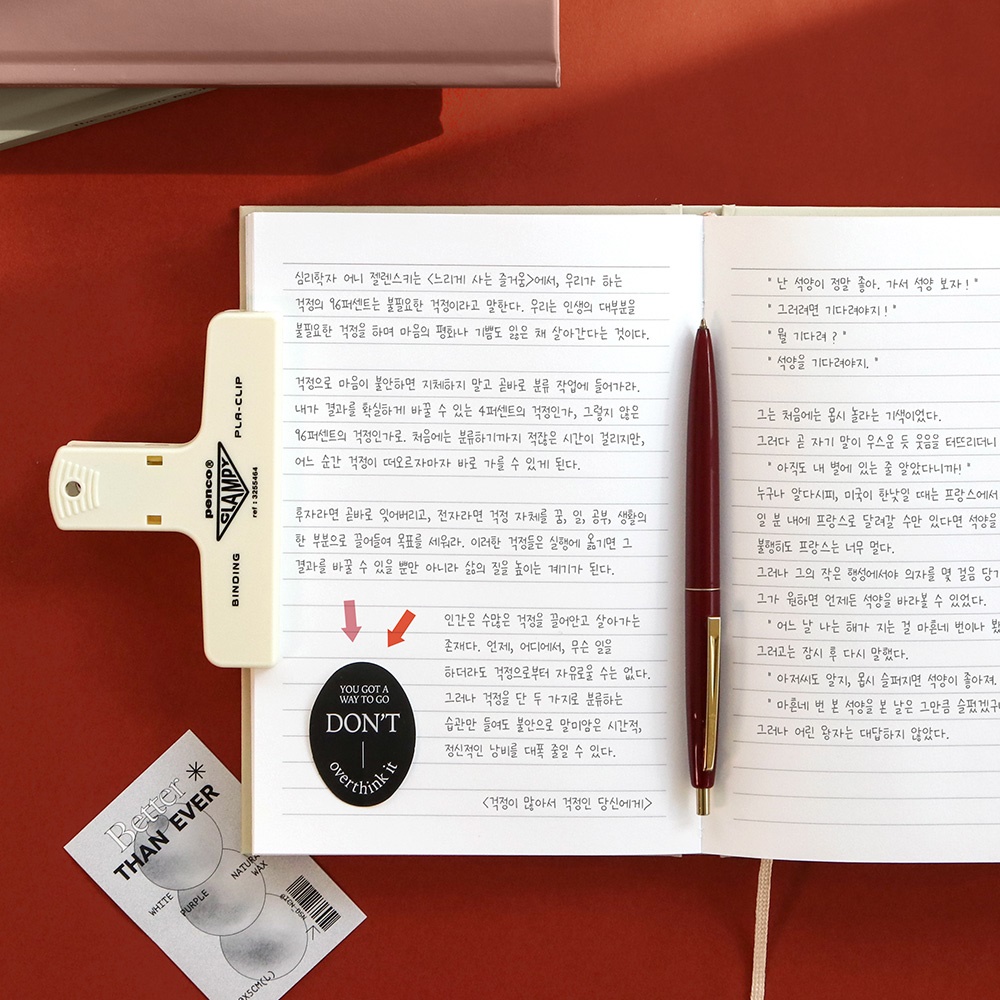 심리학자 어니 젤렌스키는 <느리게 사는 즐거움>에서, 우리가 하는
걱정의 96퍼센트는 불필요한 걱정이라고 말한다. 우리는 인생의 대부분을
불필요한 걱정을 하며 마음의 평화나 기쁨도 잃은 채 살아간다는 것이다.
걱정으로 마음이 불안하면 지체하지 말고 곧바로 분류 작업에 들어가라.
내가 결과를 확실하게 바꿀 수 있는 4퍼센트의 걱정인가, 그렇지 않은
96퍼센트의 걱정인가로. 처음에는 분류하기까지 적잖은 시간이 걸리지만,
어느 순간 걱정이 떠오르자마자 바로 가를 수 있게 된다.
후자라면 곧바로 잊어버리고, 전자라면 걱정 자체를 꿈, 일, 공부, 생활의
한 부분으로 끌어들여 목표를 세워라. 이러한 걱정들은 실행에 옮기면 그
결과를 바꿀 수 있을 뿐만 아니라 삶의 질을 높이는 계기가 된다.
인간은 수많은 걱정을 끌어안고 살아가는
존재다. 언제, 어디에서, 무슨 일을
하더라도 걱정으로부터 자유로울 수는 없다.
그러나 걱정을 단 두 가지로 분류하는
습관만 들여도 불안으로 말미암은 시간적,
정신적인 낭비를 대폭 줄일 수 있다.
<걱정이 많아서 걱정인 당신에게>
YOU GOT A
WAY TO GO
DON'T
overthink it
" 난 석양이 정말 좋아. 가서 석양 보자 ! "
" 그러려면 기다려야지 ! "
" 뭘 기다려 ? "
" 석양을 기다려야지. "
그는 처음에는 몹시 놀라는 기색이었다.
그러다 곧 자기 말이 우스운 듯 웃음을 터뜨리더니
" 아직도 내 별에 있는 줄 알았다니까! "
누구나 알다시피, 미국이 한낮일 때는 프랑스에서
일 분 내에 프랑스로 달려갈 수만 있다면 석양을
불행히도 프랑스는 너무 멀다.
그러나 그의 작은 행성에서야 의자를 몇 걸음 당기
그가 원하면 언제든 석양을 바라볼 수 있었다.
" 어느 날 나는 해가 지는 걸 마흔네 번이나 봤
그러고는 잠시 후 다시 말했다.
" 아저씨도 알지, 몹시 슬퍼지면 석양이 좋아져.
" 마흔네 번 본 석양을 본 날은 그만큼 슬펐겠구
그러나 어린 왕자는 대답하지 않았다.
PLA-CLIP
penco®
CLAMPY
ref : 3255464
BINDING
Better
THAN EVER
WHITE
PURPLE
NATURA
WAX